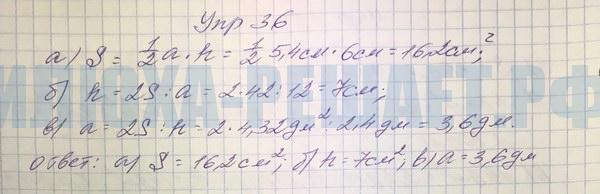 Упр 36
а) S = 1/2 a · h = 1/2 5,4см · 6см = 16,2см²;
б) h = 2S : a = 2 · 42 : 12 = 7см;
в) a = 2S : h = 2 · 4,32дм² : 2,4дм = 3,6дм.
ответ: а) S = 16,2см²; б) h = 7см²; в) a = 3,6дм
ИЛЮХА-РЕШАЕТ.РФ